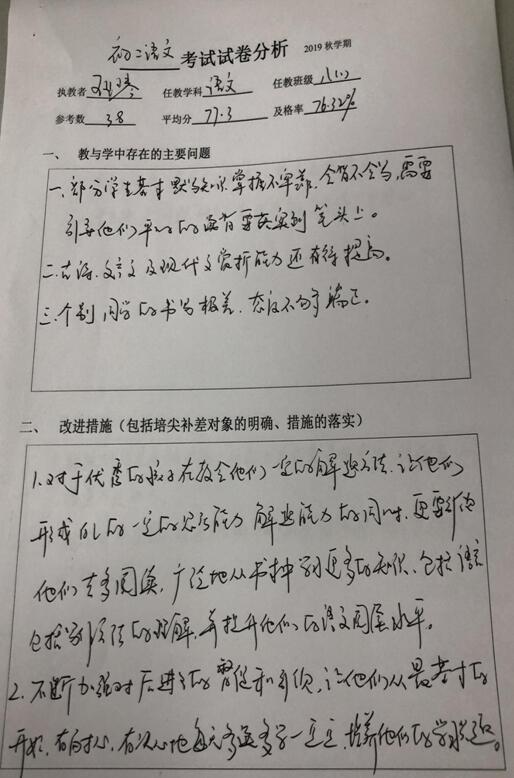 初二语文 考试试卷分析 2019 秋学期
执教者 任教学科 语文 任教班级 八(1)
参考数 38 平均分 77.3 及格率 76.32%
一、 教与学中存在的主要问题
一、部分学生基本默写知识掌握不牢靠，会背不会写，需要
引导他们平时的背要落实到笔头上。
二、古诗、文言文及现代文赏析能力还有待提高。
三、个别同学的书写极差，态度不够端正。
二、 改进措施（包括培尖补差对象的明确、措施的落实）
1、对于优秀的孩子在教会他们一定的解题方法，让他们
形成自己的一定的思考能力 解题能力的同时，更要引导
他们去多阅读，广泛地从书中学到更多的知识，包括语言
包括写法的理解，并提升他们的语文阅读水平。
2、不断加强对后进生的督促和，让他们从最基本的
开始，有信心，有决心地每天多学一点点，培养他们的学习兴趣。